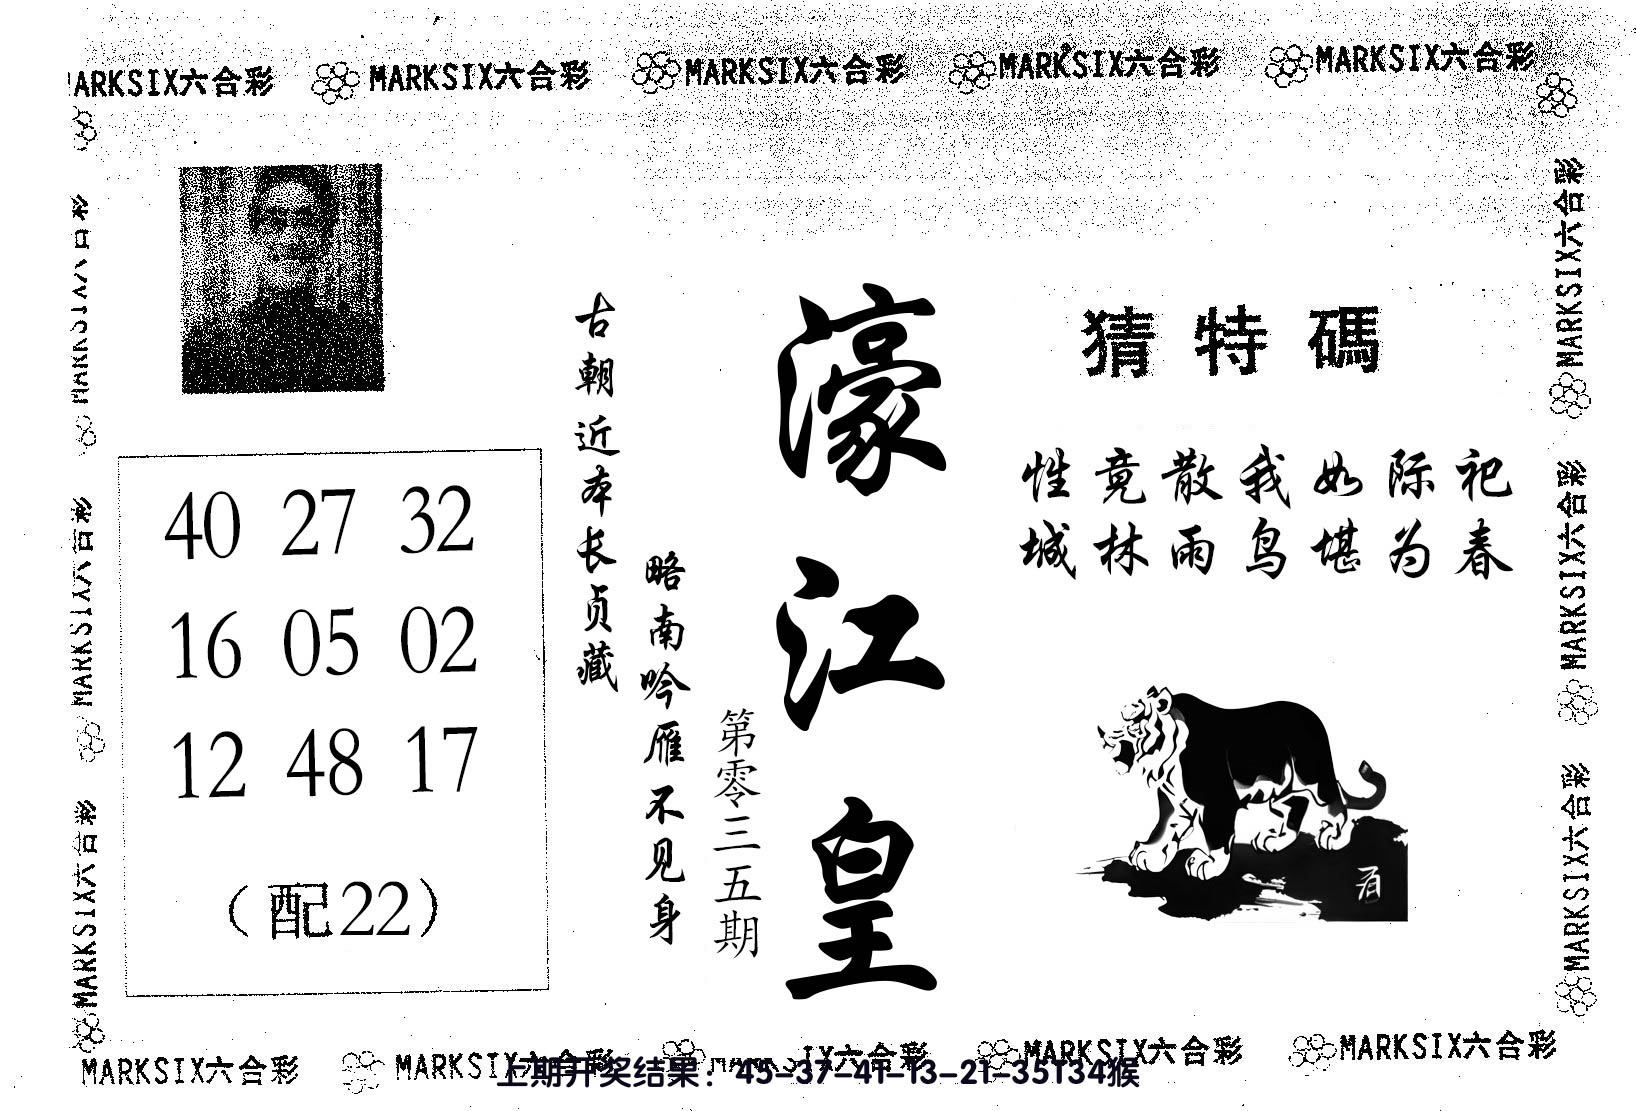 MARKSIX六合彩 MARKSIX六合彩 MARKSIX六合彩 MARKSIX六合彩 MARKSIX六合彩
猜特碼
性竟散我如际祀
城林雨鸟堪为春
濠江皇
第零三五期
略南吟雁不见身
古朝近本长贞藏
40 27 32
16 05 02
12 48 17
（配22）
MARKSIX六合彩
MARKSIX六合彩
MARKSIX六合彩
MARKSIX六合彩
MARKSIX六合彩
MARKSIX六合彩
MARKSIX六合彩 MARKSIX六合彩 MARKSIX六合彩 MARKSIX六合彩 MARKSIX六合彩
上期开奖结果：45-37-41-13-21-35T34猴